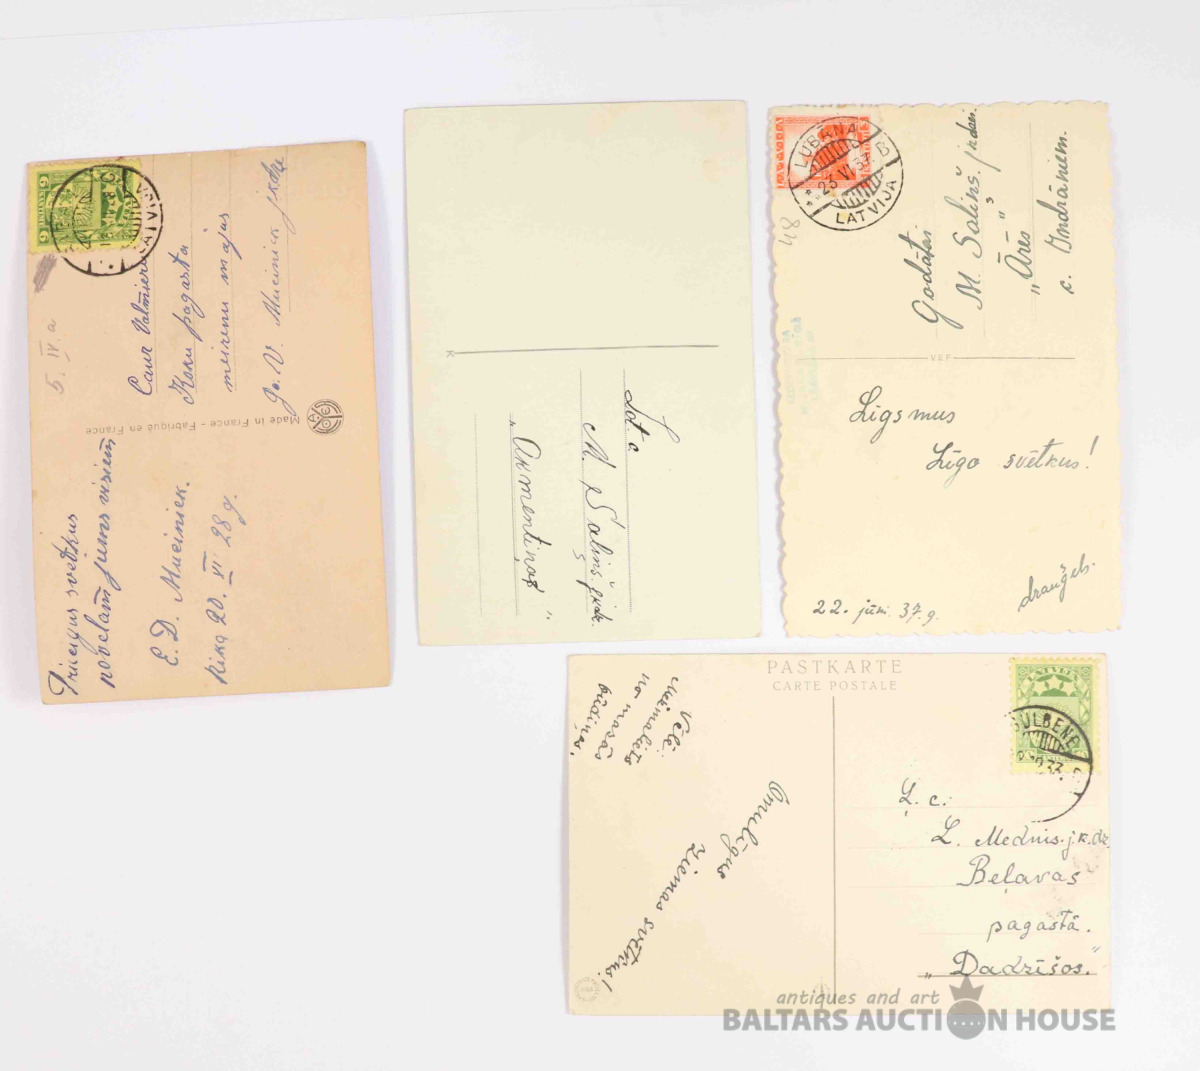 LATVIJA
Caur Valmieru
Koņu pagasta
meireru majas
Made in France - Fabriqué en France
5. IV. a
Priecigus svētkus
novēlam jums visiem
E. D. Muciniek.
Rīkā 20. VI 28 g.
K
Lot. c.
M. Saliņš. jkdz.
„Akmentiņas"
LUBĀNA
B
23 VI 37
LATVIJA
48
Godātai
M. Saliņš. jkdzei.
„Āres"
c. Indrāniem.
VEF
Līgsmus
Līgo svētkus!
draugs.
22. jūni 37. g.
PASTKARTE
CARTE POSTALE
Vēlē
no mazās
Omulīgus
ziemas svētkus!
LATVIJA
GULBENE
33
Ļ. c.
L. Mednis. j.k.dz.
Beļavas
pagastā.
„Dadzīšos."
antiques and art
BALTARS AUCTION HOUSE